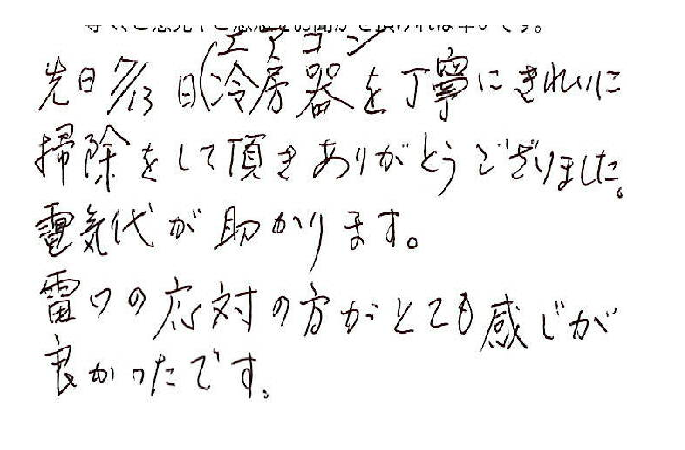 エアコン
先日7/13日(冷房器を丁寧にきれいに
掃除をして頂きありがとうございました。
電気代が助かります。
の応対の方がとても感じが
良かったです。